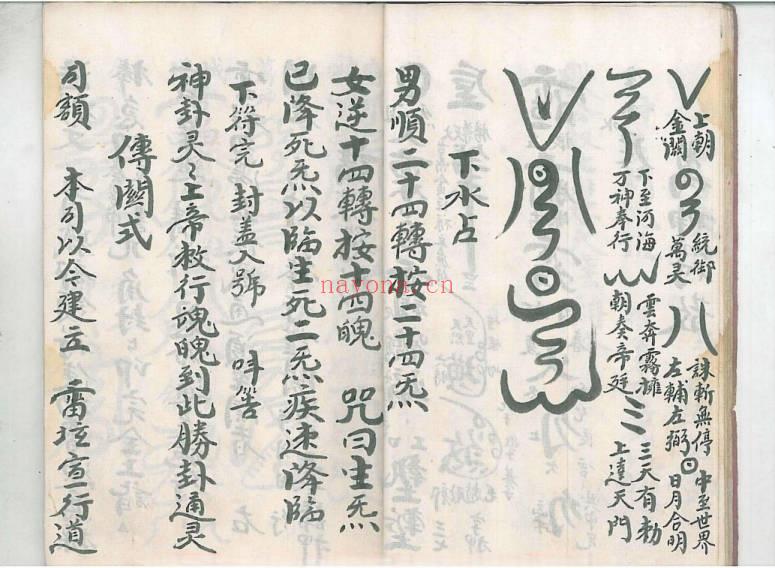 上朝
金闕
統御
萬灵
誅斬無停
左輔左弼
中至世界
日月合明
下至河海
万神奉行
雲奔霧擁
朝奏帝庭
三天有勅
上達天門
下水占
男順二十四轉按二十四炁
女逆十四轉按十四魄 咒曰生炁
已降死炁以临生死二炁疾速降臨
下符完 封盖入號 呌筶
神卦灵〻上帝敕行魂魄到此勝卦通灵
傳關式
司額 本司以今建立 雷坛宣行道
nayona.cn